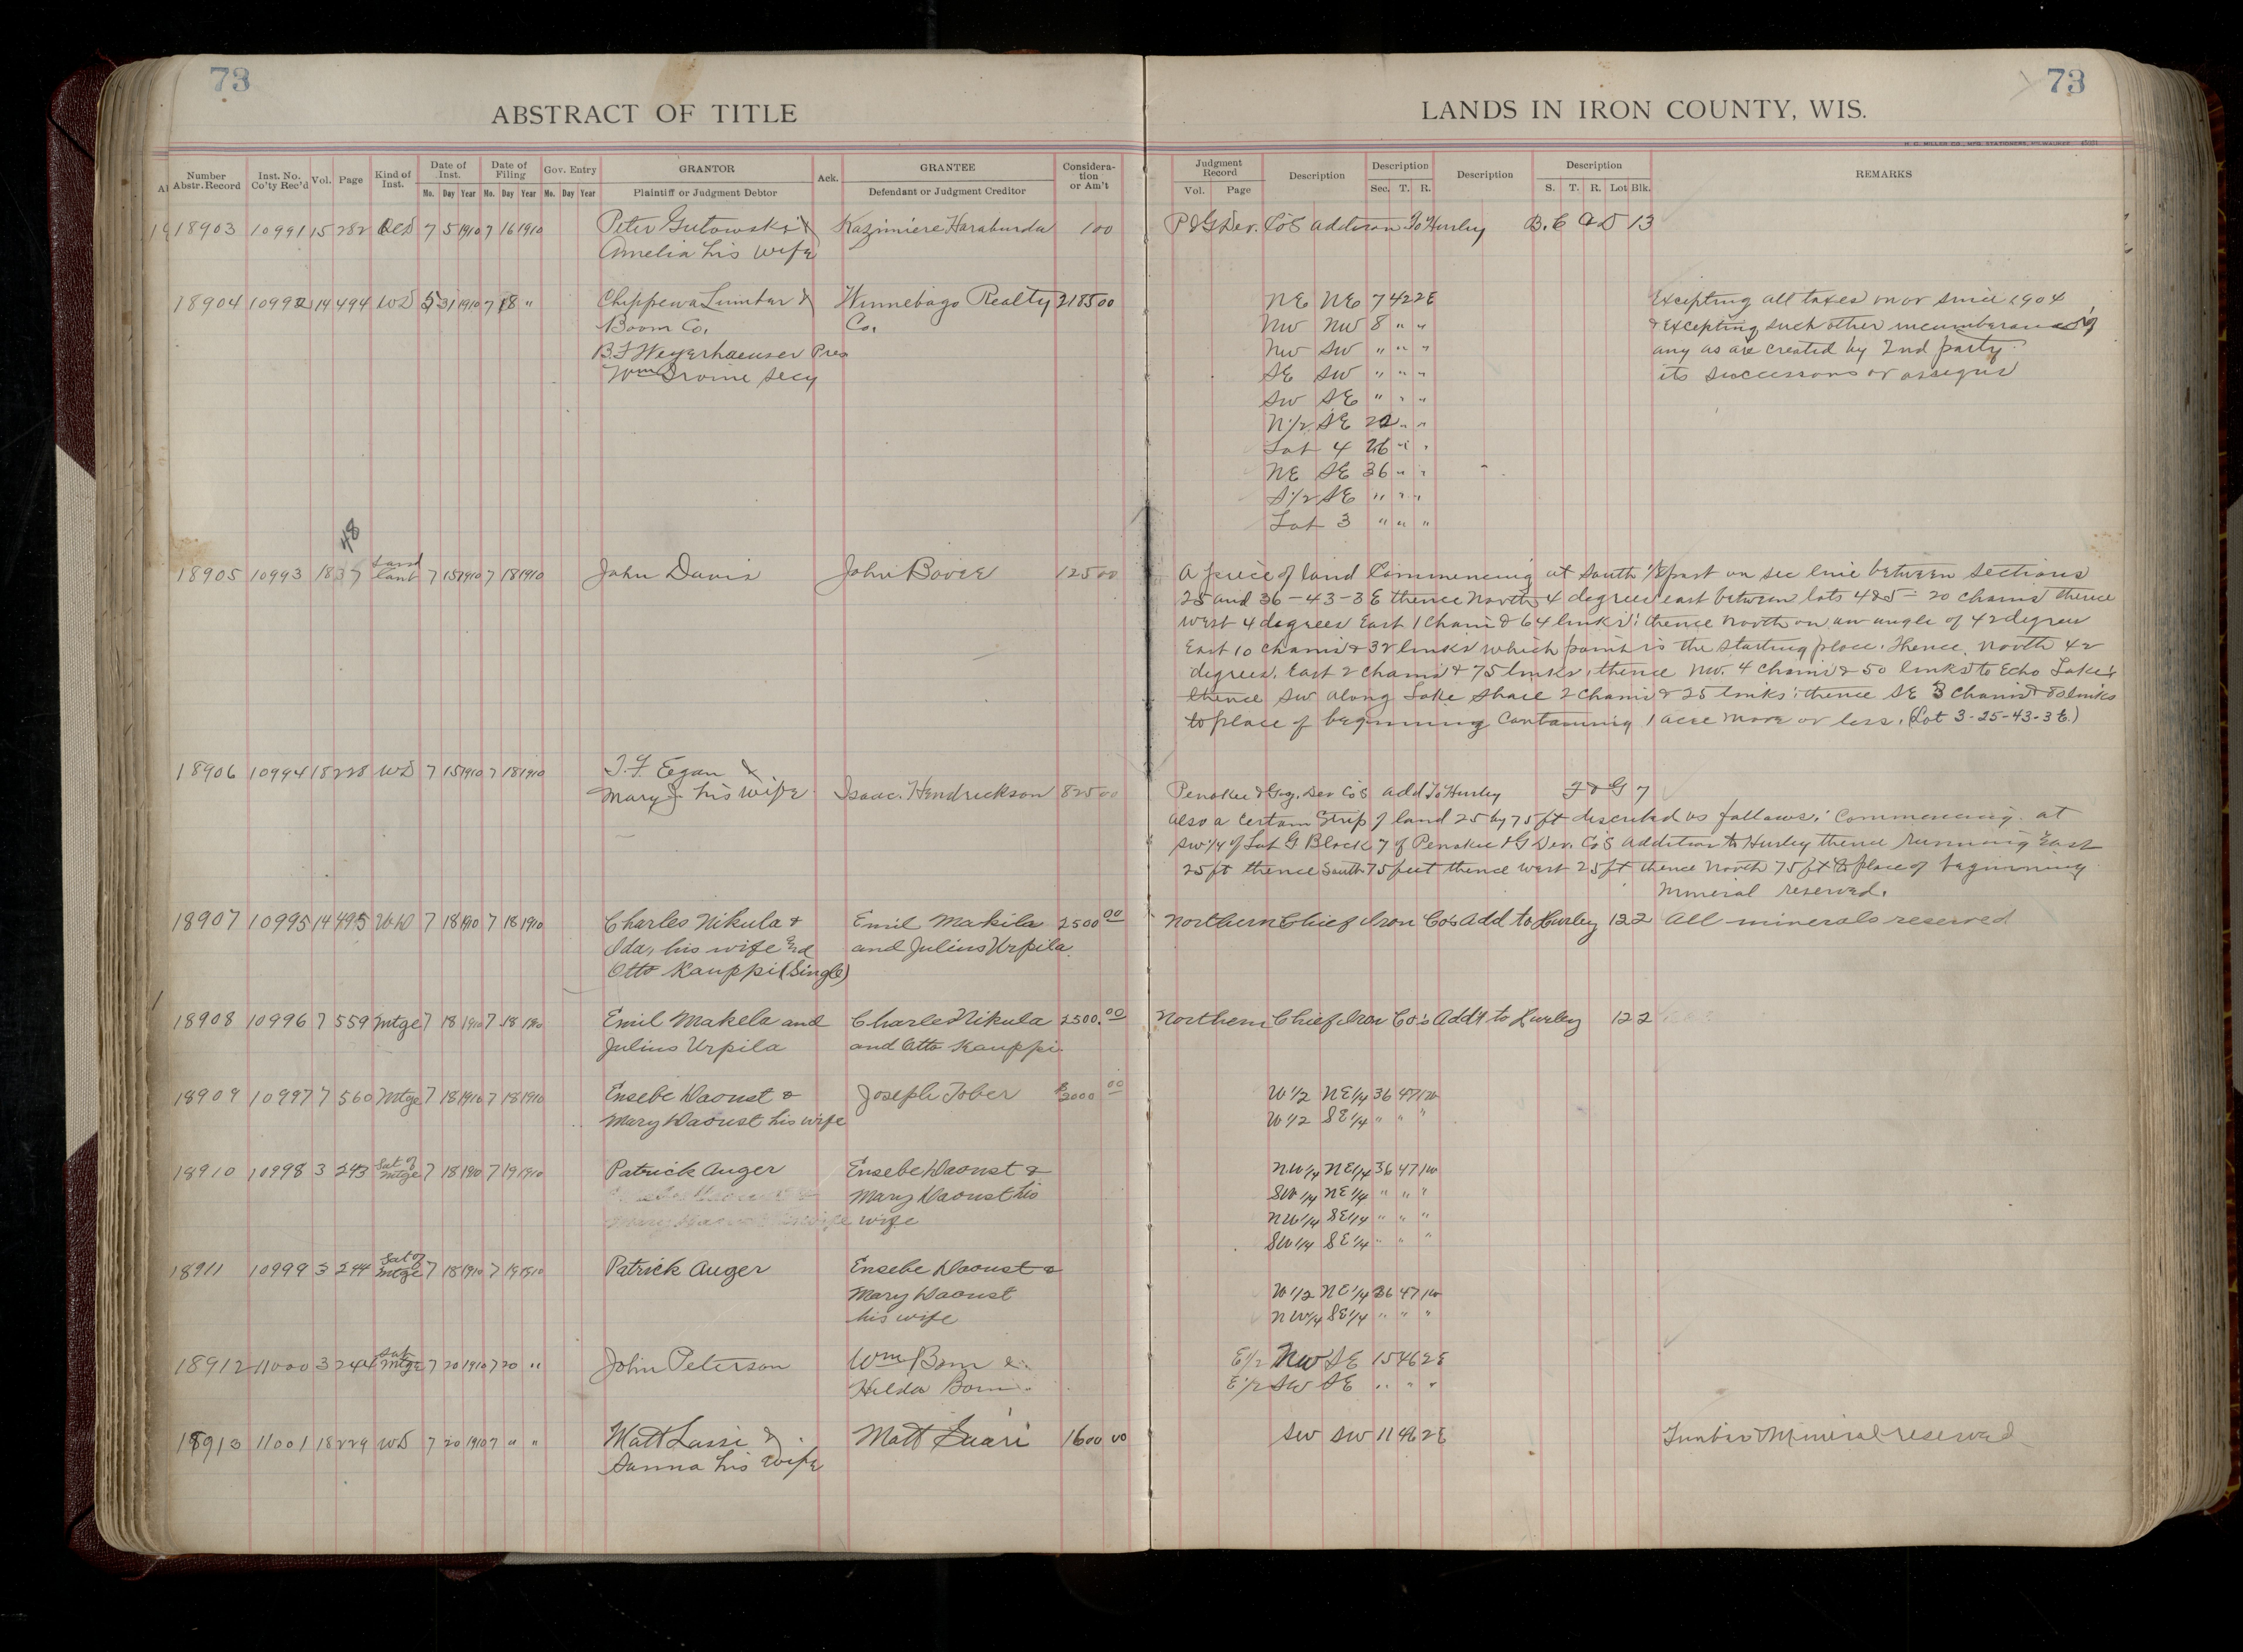 73
73
ABSTRACT OF TITLE
LANDS IN IRON COUNTY, WIS.
H. G. MILLER CO., MFG. STATIONERS, MILWAUKEE
Number Abstr. Record
Inst. No. Co'ty Rec'd
Vol.
Page
Kind of Inst.
Date of Inst.
Mo. Day Year
Date of Filing
Mo. Day Year
Gov. Entry
Mo. Day Year
GRANTOR
Plaintiff or Judgment Debtor
Ack.
GRANTEE
Defendant or Judgment Creditor
Considera-tion or Am't
Judgment Record
Vol. Page
Description
Description
Sec. T. R.
Description
Description
S. T. R. Lot Blk.
REMARKS
18903 10991 15 282 7 5 1910 7 16 1910 Peter Gutowski & Kazimiere Haraburda 100 P & G Dev. Co's addition To Hurley B. C 13
Amelia his wife
18904 10992 14 494 WD 5 31 1910 7 18 " Chippewa Lumber & Winnebago Realty 218500 NE NE 7 42 2E Excepting all taxes on or since 1904
Boom Co. Co. NW NW 8 " " & Excepting such other incumberances if
Weyerhaeuser Pres NW SW " " " any as are created by 2nd party
Wm Irvine Secy SE SW " " " its successors or assigns
SW SE " " "
N 1/2 SE 22 " "
Lot 4 26 " "
NE SE 36 " "
S 1/2 SE " " "
Lot 3 " " "
48
18905 10993 18 37 Land Cont 7 15 1910 7 18 1910 John Davis John Bovee 125 00 A piece of land Commencing at South 1/8 post on sec line between sections
25 and 36-43-3E thence North 4 degrees east between lots 4 & 5 = 20 chains thence
west 4 degrees East 1 chain & 64 links; thence North on an angle of 42 degrees
East 10 chains & 32 links which point is the starting place. Thence North 42
degrees, East 2 chains & 75 links, thence NW. 4 chains & 50 links to Echo Lake;
thence SW along Lake shore 2 chains & 25 links; thence SE 3 chains & 80 links
to place of beginning Containing 1 acre more or less. (Lot 3-25-43-3E.)
18906 10994 18 228 WD 7 15 1910 7 18 1910 T. F. Egan &
Mary J. his wife Isaac. Hendrickson 825 00 Penokee & Gog. Dev Co's add To Hurley F & G 7
Also a Certain Strip of land 25 by 75 ft described as follows; Commencing at
SW 1/4 of Lot G Block 7 of Penokee & G Dev. Co's Addition to Hurley thence running East
25 ft thence South 75 feet thence west 25 ft thence North 75 ft to place of beginning
Mineral reserved.
18907 10995 14 495 WD 7 18 1910 7 18 1910 Charles Nikula & Emil Makila 2500 00 Northern Chief Iron Co's Add to Hurley 12 2 All minerals reserved
Ida, his wife and and Julius Urpila.
Otto Kauppi (Single)
18908 10996 7 559 Mtge 7 18 1910 7 18 1910 Emil Makela and Charles Nikula 2500.00 Northern Chief Iron Co's Add't to Hurley 12 2
Julius Urpila and Otto Kauppi.
18909 10997 7 560 Mtge 7 18 1910 7 18 1910 Ensebe Daoust & Joseph Tober $2000 00 W 1/2 NE 1/4 36 47 1W
Mary Daoust his wife W 1/2 SE 1/4 " " "
18910 10998 3 243 Sat of Mtge 7 18 1910 7 19 1910 Patrick Auger Ensebe Daoust & NW 1/4 NE 1/4 36 47 1W
Mary Daoust his SW 1/4 NE 1/4 " " "
wife NW 1/4 SE 1/4 " " "
SW 1/4 SE 1/4 " " "
18911 10999 3 244 Sat of Mtge 7 18 1910 7 19 1910 Patrick Auger Ensebe Daoust &
Mary Daoust W 1/2 NE 1/4 36 47 1W
his wife NW 1/4 SE 1/4 " " "
18912 11000 3 244 Sat Mtge 7 20 1910 7 20 " John Peterson Wm Born & E 1/2 NW SE 15 46 2E
Hilda Born E 1/2 SW SE " " "
18913 11001 18 229 WD 7 20 1910 7 " " Matt Lassi & Matt Saari 1600 00 SW SW 11 46 2E Timber & Mineral reserved
Sanna his wife